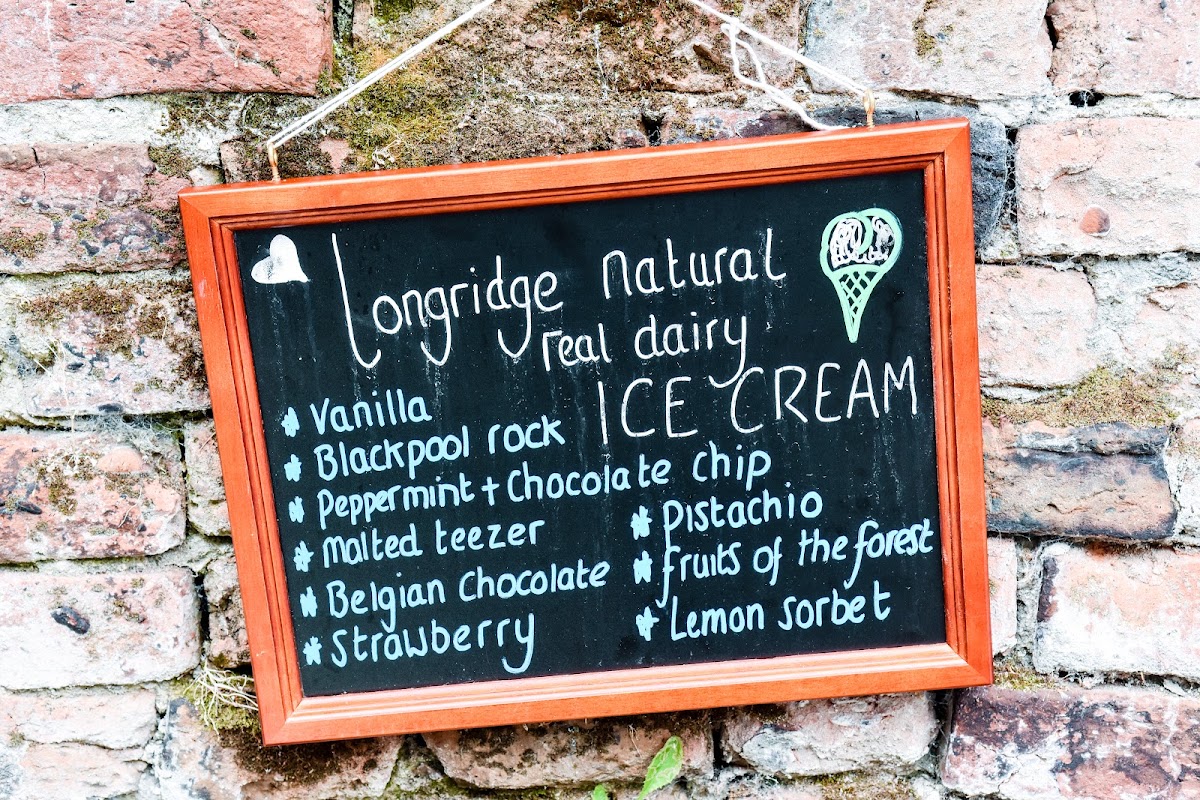 Longridge Natural
real dairy
ICE CREAM
* Vanilla
* Blackpool rock
* Peppermint + Chocolate chip
* Malted teezer
* Belgian Chocolate
* Strawberry
* Pistachio
* fruits of the forest
* Lemon sorbet